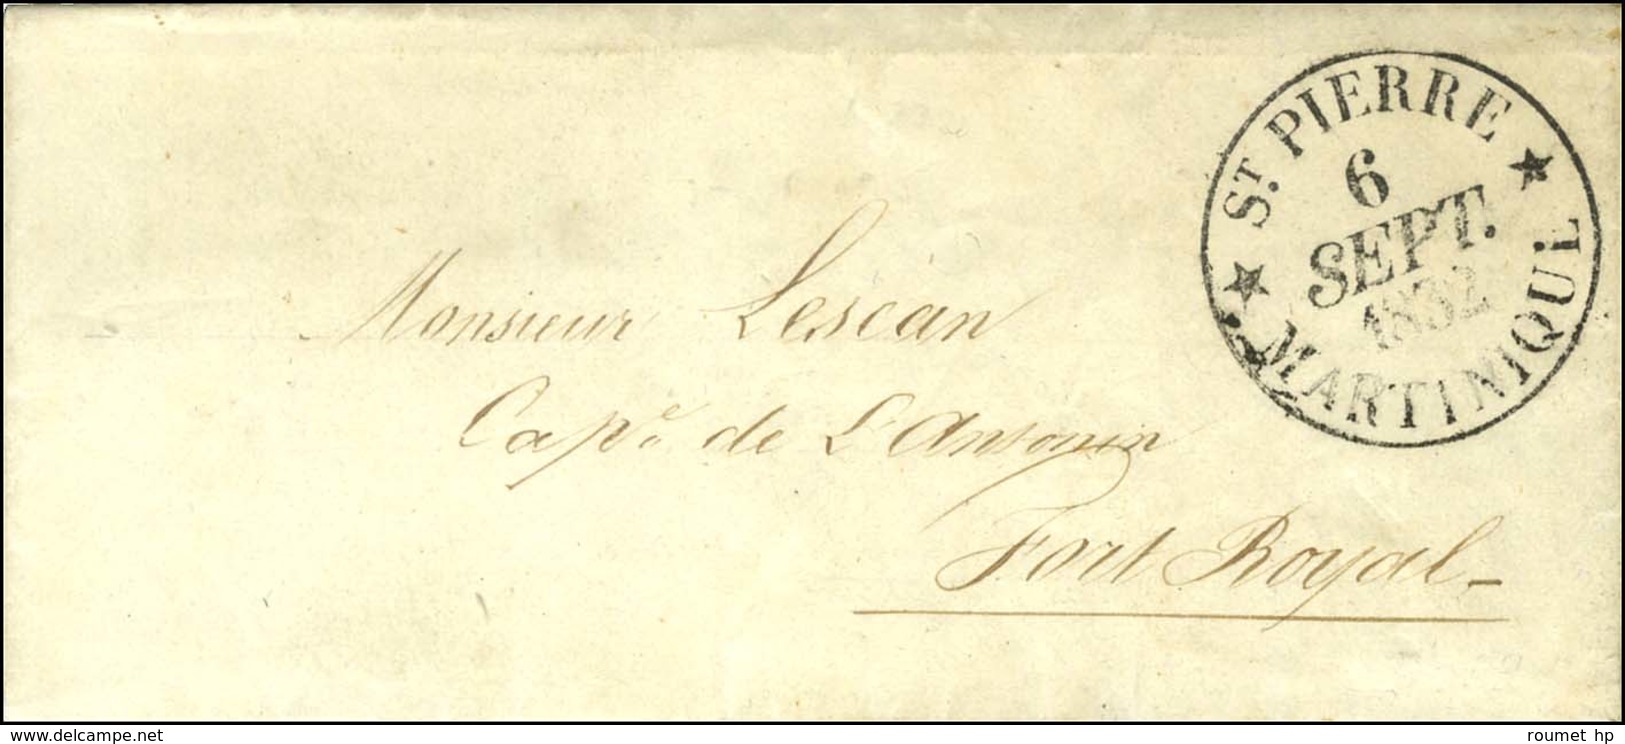 ST. PIERRE
6
SEPT.
1832
MARTINIQUE
Monsieur Lescan
Cape. de L'Antonin
Fort Royal
www.delcampe.net
roumet hp